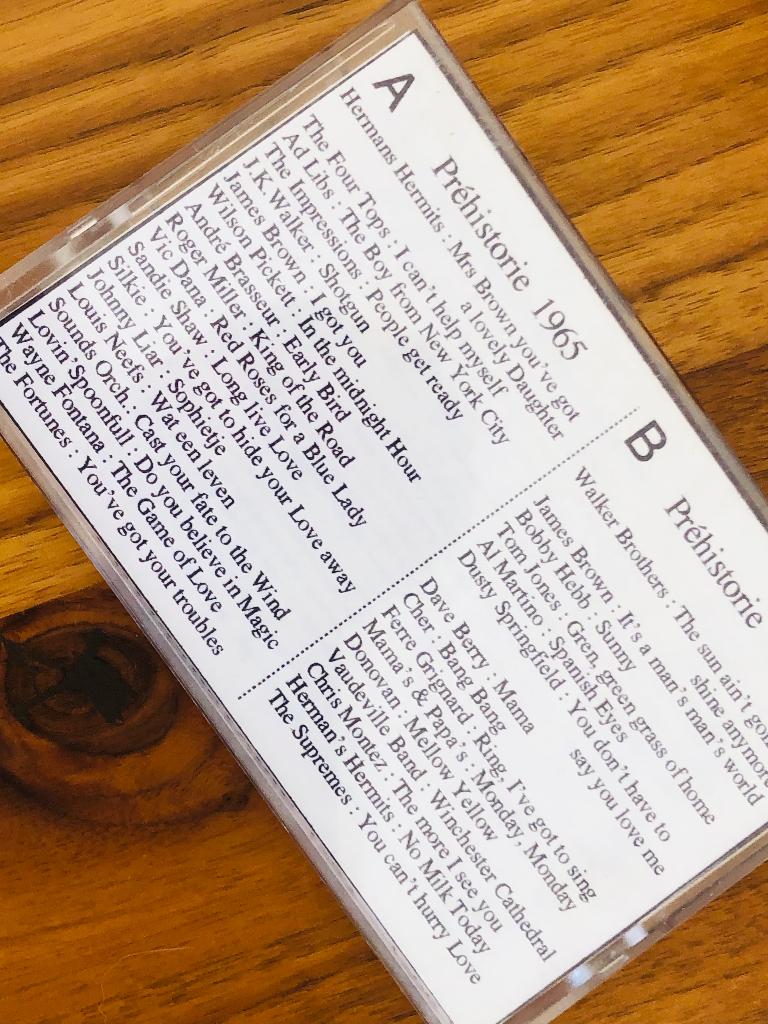 A
Préhistorie 1965
Hermans Hermits : Mrs Brown you've got
a lovely Daughter
The Four Tops : I can't help myself
Ad Libs : The Boy from New York City
The Impressions : People get ready
J.K. Walker : Shotgun
James Brown : I got you
Wilson Pickett : In the midnight Hour
André Brasseur : Early Bird
Roger Miller : King of the Road
Vic Dana : Red Roses for a Blue Lady
Sandie Shaw : Long live Love
Silkie : You've got to hide your Love away
Johnny Liar : Sophietje
Louis Neefs : Wat een leven
Sounds Orch.: Cast your fate to the Wind
Lovin'Spoonfull : Do you believe in Magic
Wayne Fontana : The Game of Love
The Fortunes : You've got your troubles
B
Préhistorie
Walker Brothers : The sun ain't
shine anymore
James Brown : It's a man's man's world
Bobby Hebb : Sunny
Tom Jones : Green, green grass of home
Al Martino : Spanish Eyes
Dusty Springfield : You don't have to
say you love me
Dave Berry : Mama
Cher : Bang Bang
Ferre Grignard : Ring, I've got to sing
Mama's & Papa's : Monday, Monday
Donovan : Mellow Yellow
Vaudeville Band : Winchester Cathedral
Chris Montez : The more I see you
Herman's Hermits : No Milk Today
The Supremes : You can't hurry Love